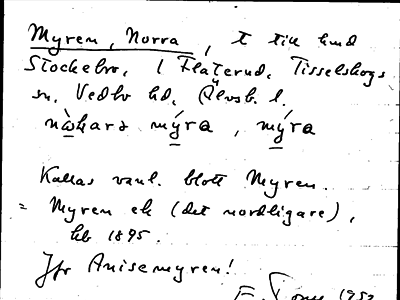 Myren, Norra, t till hmd
Stockebo, 1 Flaterud, Tisselskogs
sn, Vedbo hd, Älvsb. l.
nωharɜ mý̲ra, mý̲ra
Kallas vanl. blott Myren.
= Myren ek (det nordligare),
kb 1895.
Jfr Anisemyren!
1952